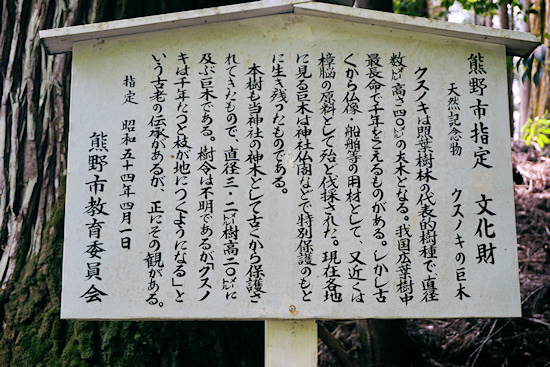 熊野市指定 文化財
天然記念物 クスノキの巨木
クスノキは照葉樹林の代表的樹種で、直径
数㍍高さ四〇㍍の大木となる。我国広葉樹中
最長命で千年をこえるものがある。しかし古
くから仏像・船艇等の用材として、又近くは
樟脳の原料として殆ど伐採された。現在各地
に見る巨木は神社仏閣などで特別保護のもと
に生き残ったものである。
本樹も当神社の神木として古くから保護さ
れてきたもので、直径三・二㍍樹高二〇㍍に
及ぶ巨木である。樹令は不明であるが「クスノ
キは千年たつと枝が地につくようになる」と
いう古老の伝承があるが、正にその観がある。
指定 昭和五十四年四月一日
熊野市教育委員会